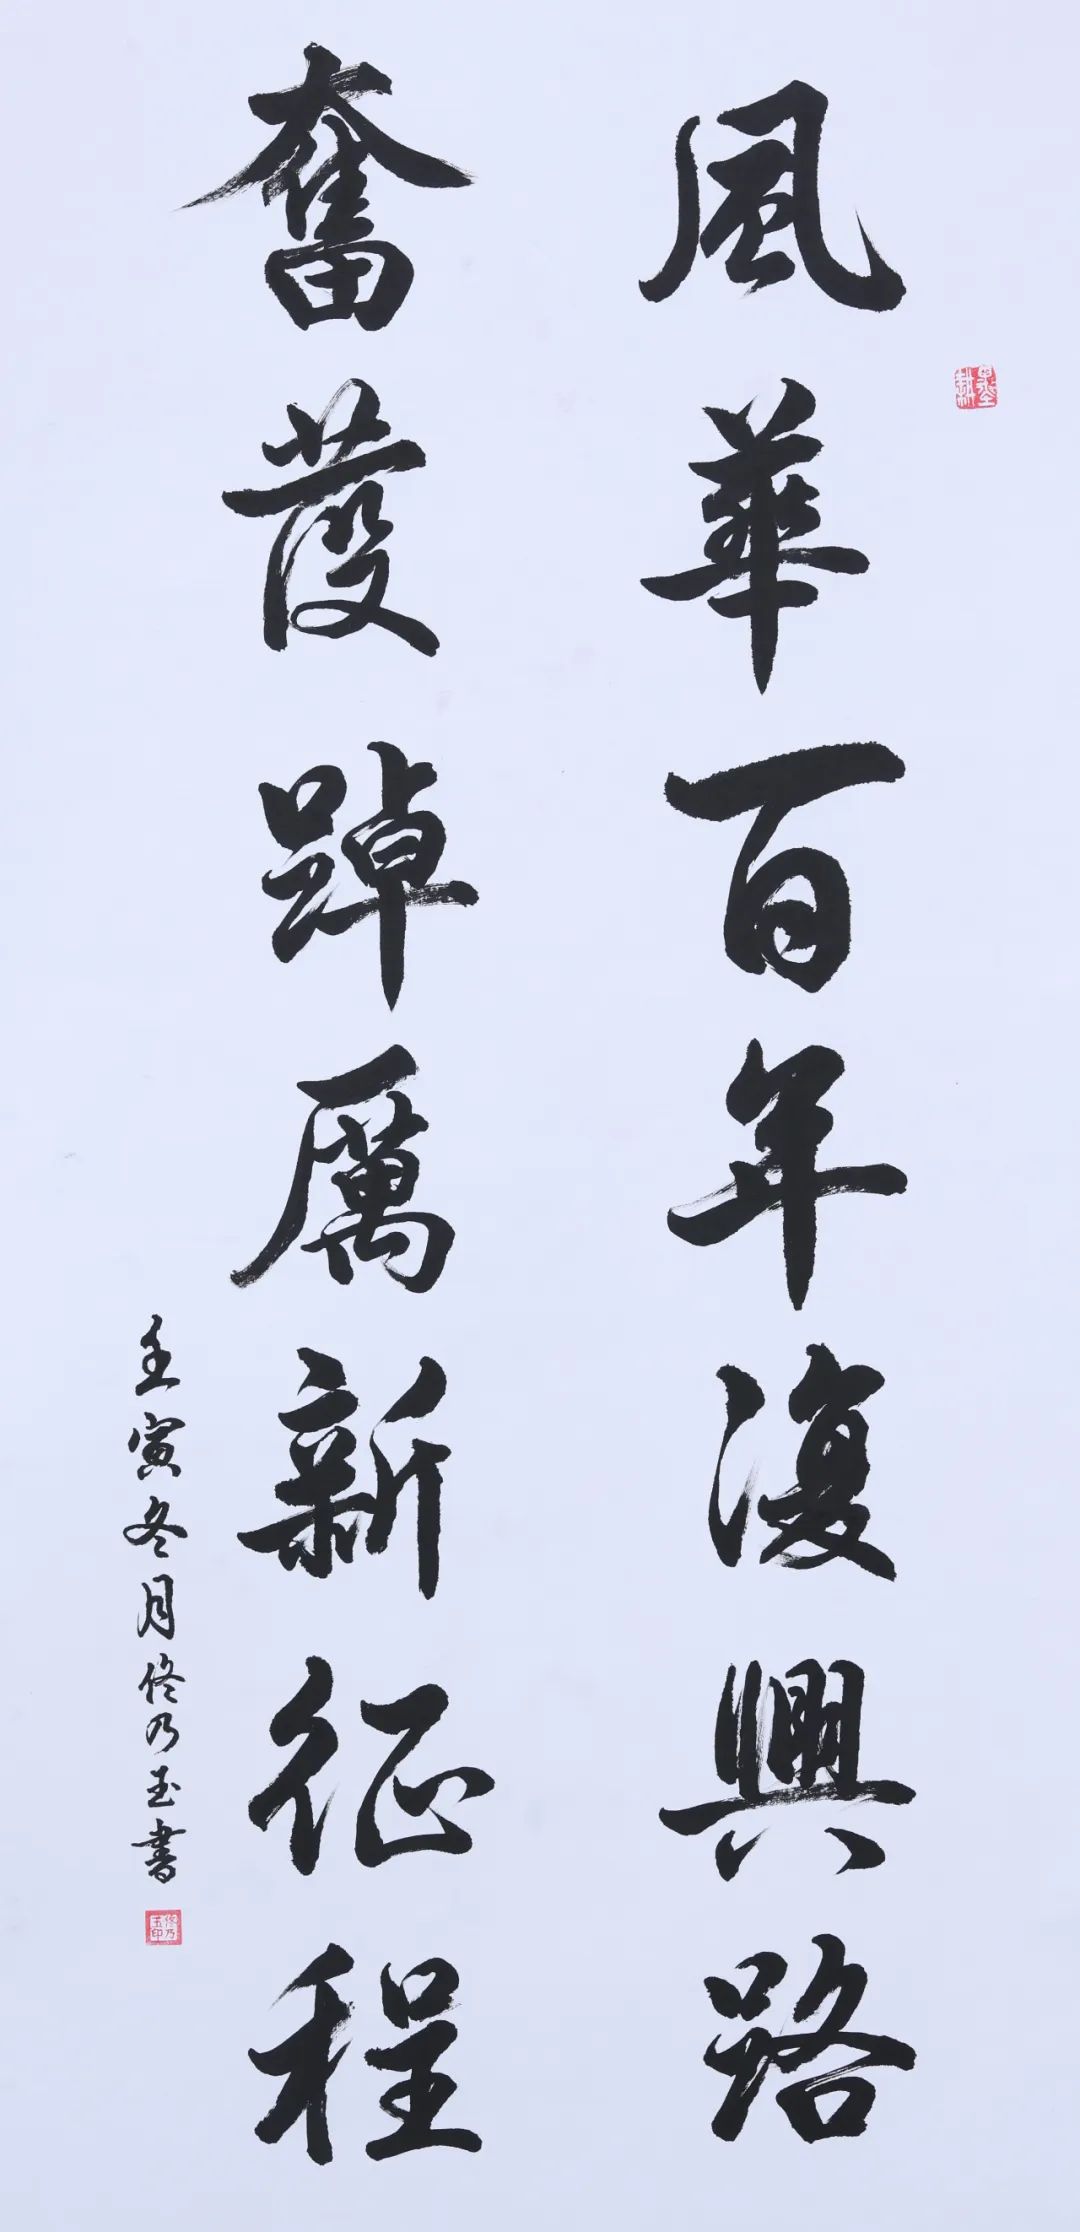 風華百年復興路
奮發踔厲新征程
壬寅冬月佟乃玉書
墨耕
佟乃玉印